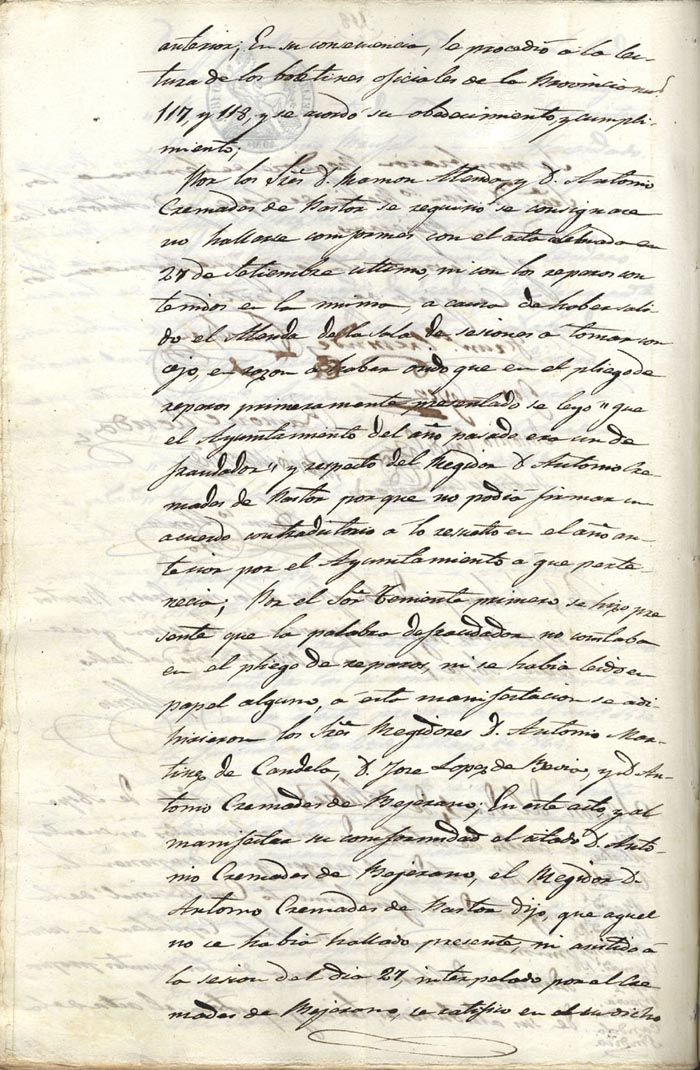 anterior; En su consecuencia, se procedió a la lec-
tura de los boletines oficiales de la Provincia num.s
117, y 118, y se acordó su obedecimiento, y cumpli-
miento;
Por los Sres D. Ramon y D. Antonio
Cremades de Pastor se requirió se consignace
no hallarse conformes con el acta celebrada en
27 de Setiembre ultimo, ni con los reparos con
tenidos en la misma, a causa de haber sali-
do el de la sala de sesiones a tomar con
cejo, en razon a haber oido que en el pliego de
reparos primeramente presentado se leyo " que
el Ayuntamiento del año pasado era un de
fraudador" y respecto del Regidor D Antonio Cre
mades de Pastor por que no podia firmar un
acuerdo contradictorio a lo resuelto en el año an-
terior por el Ayuntamiento a que perte-
necia; Por el Sor Teniente primero se hizo pre
sente que la palabra defraudador no constaba
en el pliego de reparos, ni se habia leido en
papel alguno, a esta manifestacion se adi-
hirieron los Sres Regidores D. Antonio Mar-
tinez de Candela, D. Jose Lopez de y D An-
tonio Cremades de Bejerano; En este acto, y al
manifestar su conformidad el citado D. Anto-
nio Cremades de Bejerano, el Regidor D.
Antonio Cremades de Pastor dijo, que aquel
no se habia hallado presente, ni asistido á
la sesion del dia 27, interpelado por el Cre
mades de Bejerano, se ratificó en el su dicho